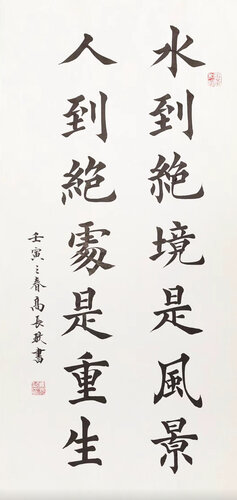 水到絕境是風景
人到絕處是重生
壬寅之春高長
書